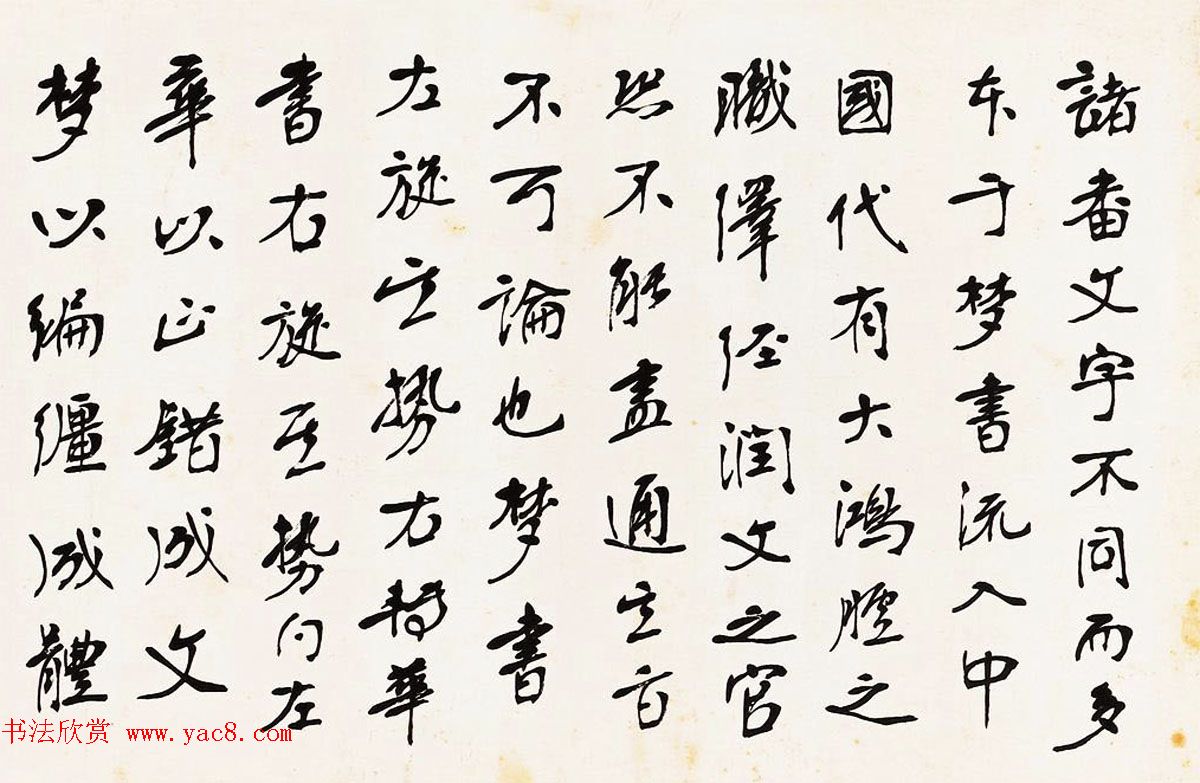 諸番文字不同而多
本于梵書流入中
國代有大鴻臚之
職譯經潤文之官
恐不能盡通其旨
不可論也梵書
左旋其勢右轉華
書右旋其勢向左
華以正錯成文
梵以編纏成體
书法欣赏 www.yac8.com